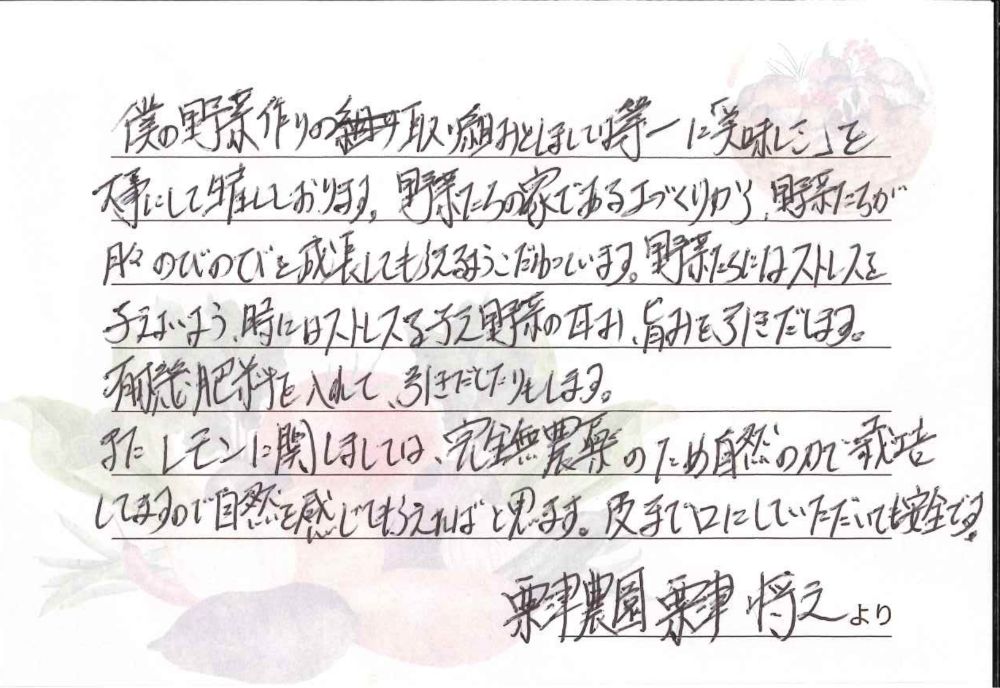 僕の野菜作りの取り組みとしましては第一に「美味しさ」を
大事にして生産しております。野菜たちの家である土づくりから、野菜たちが
日々のびのびと成長してもらえるようこだわっています。野菜たちにはストレスを
与えないよう、時にはストレスを与え野菜の甘み、旨みを引きだします。
有機肥料を入れて、引きだしたりもします。
またレモンに関しましては、完全無農薬のため自然の力で栽培
してますので自然を感じてもらえればと思います。皮まで口にしていただいても安全です。
粟津農園 粟津 将之より